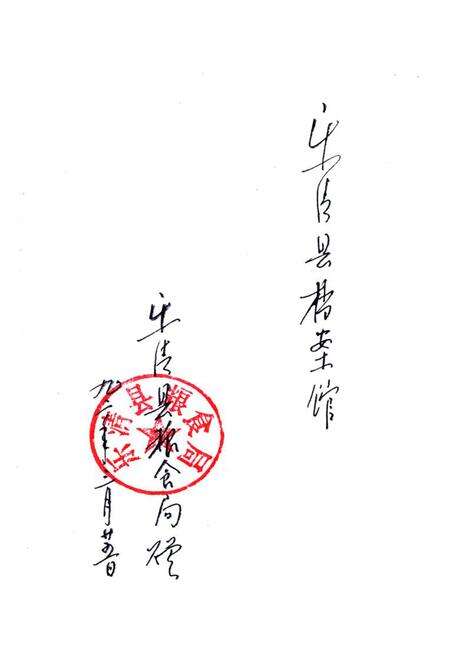 乐清县档案馆
乐清县粮食局赠
九二年八月廿五日
乐清县粮食局